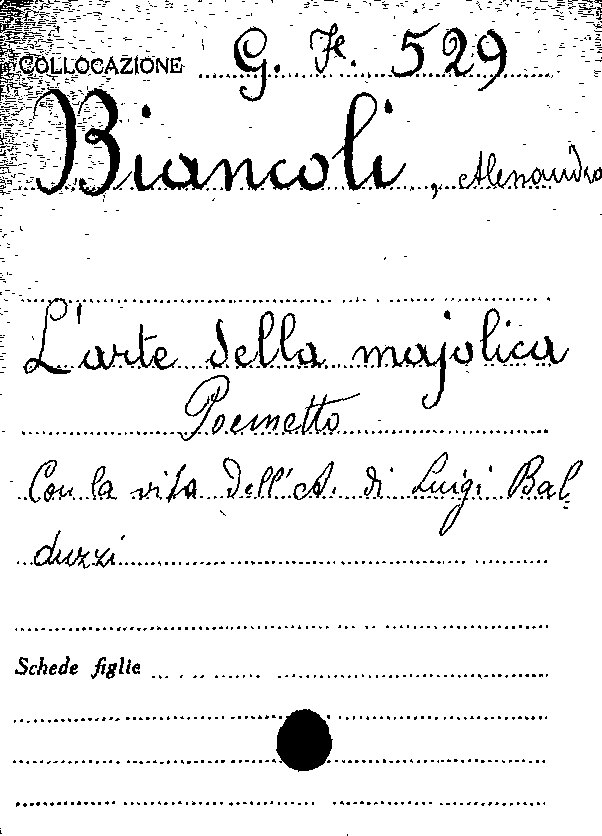 COLLOCAZIONE G. Fe. 529
Biancoli, Alessandro
L'arte della majolica
Poemetto
Con la vita dell'A. di Luigi Bal-
duzzi
Schede figlie